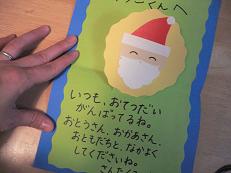 くんへ
いつも、おてつだい
がんばってるね。
おとうさん、おかあさん、
おともだちと、なかよく
してくださいね。
さんたくろ